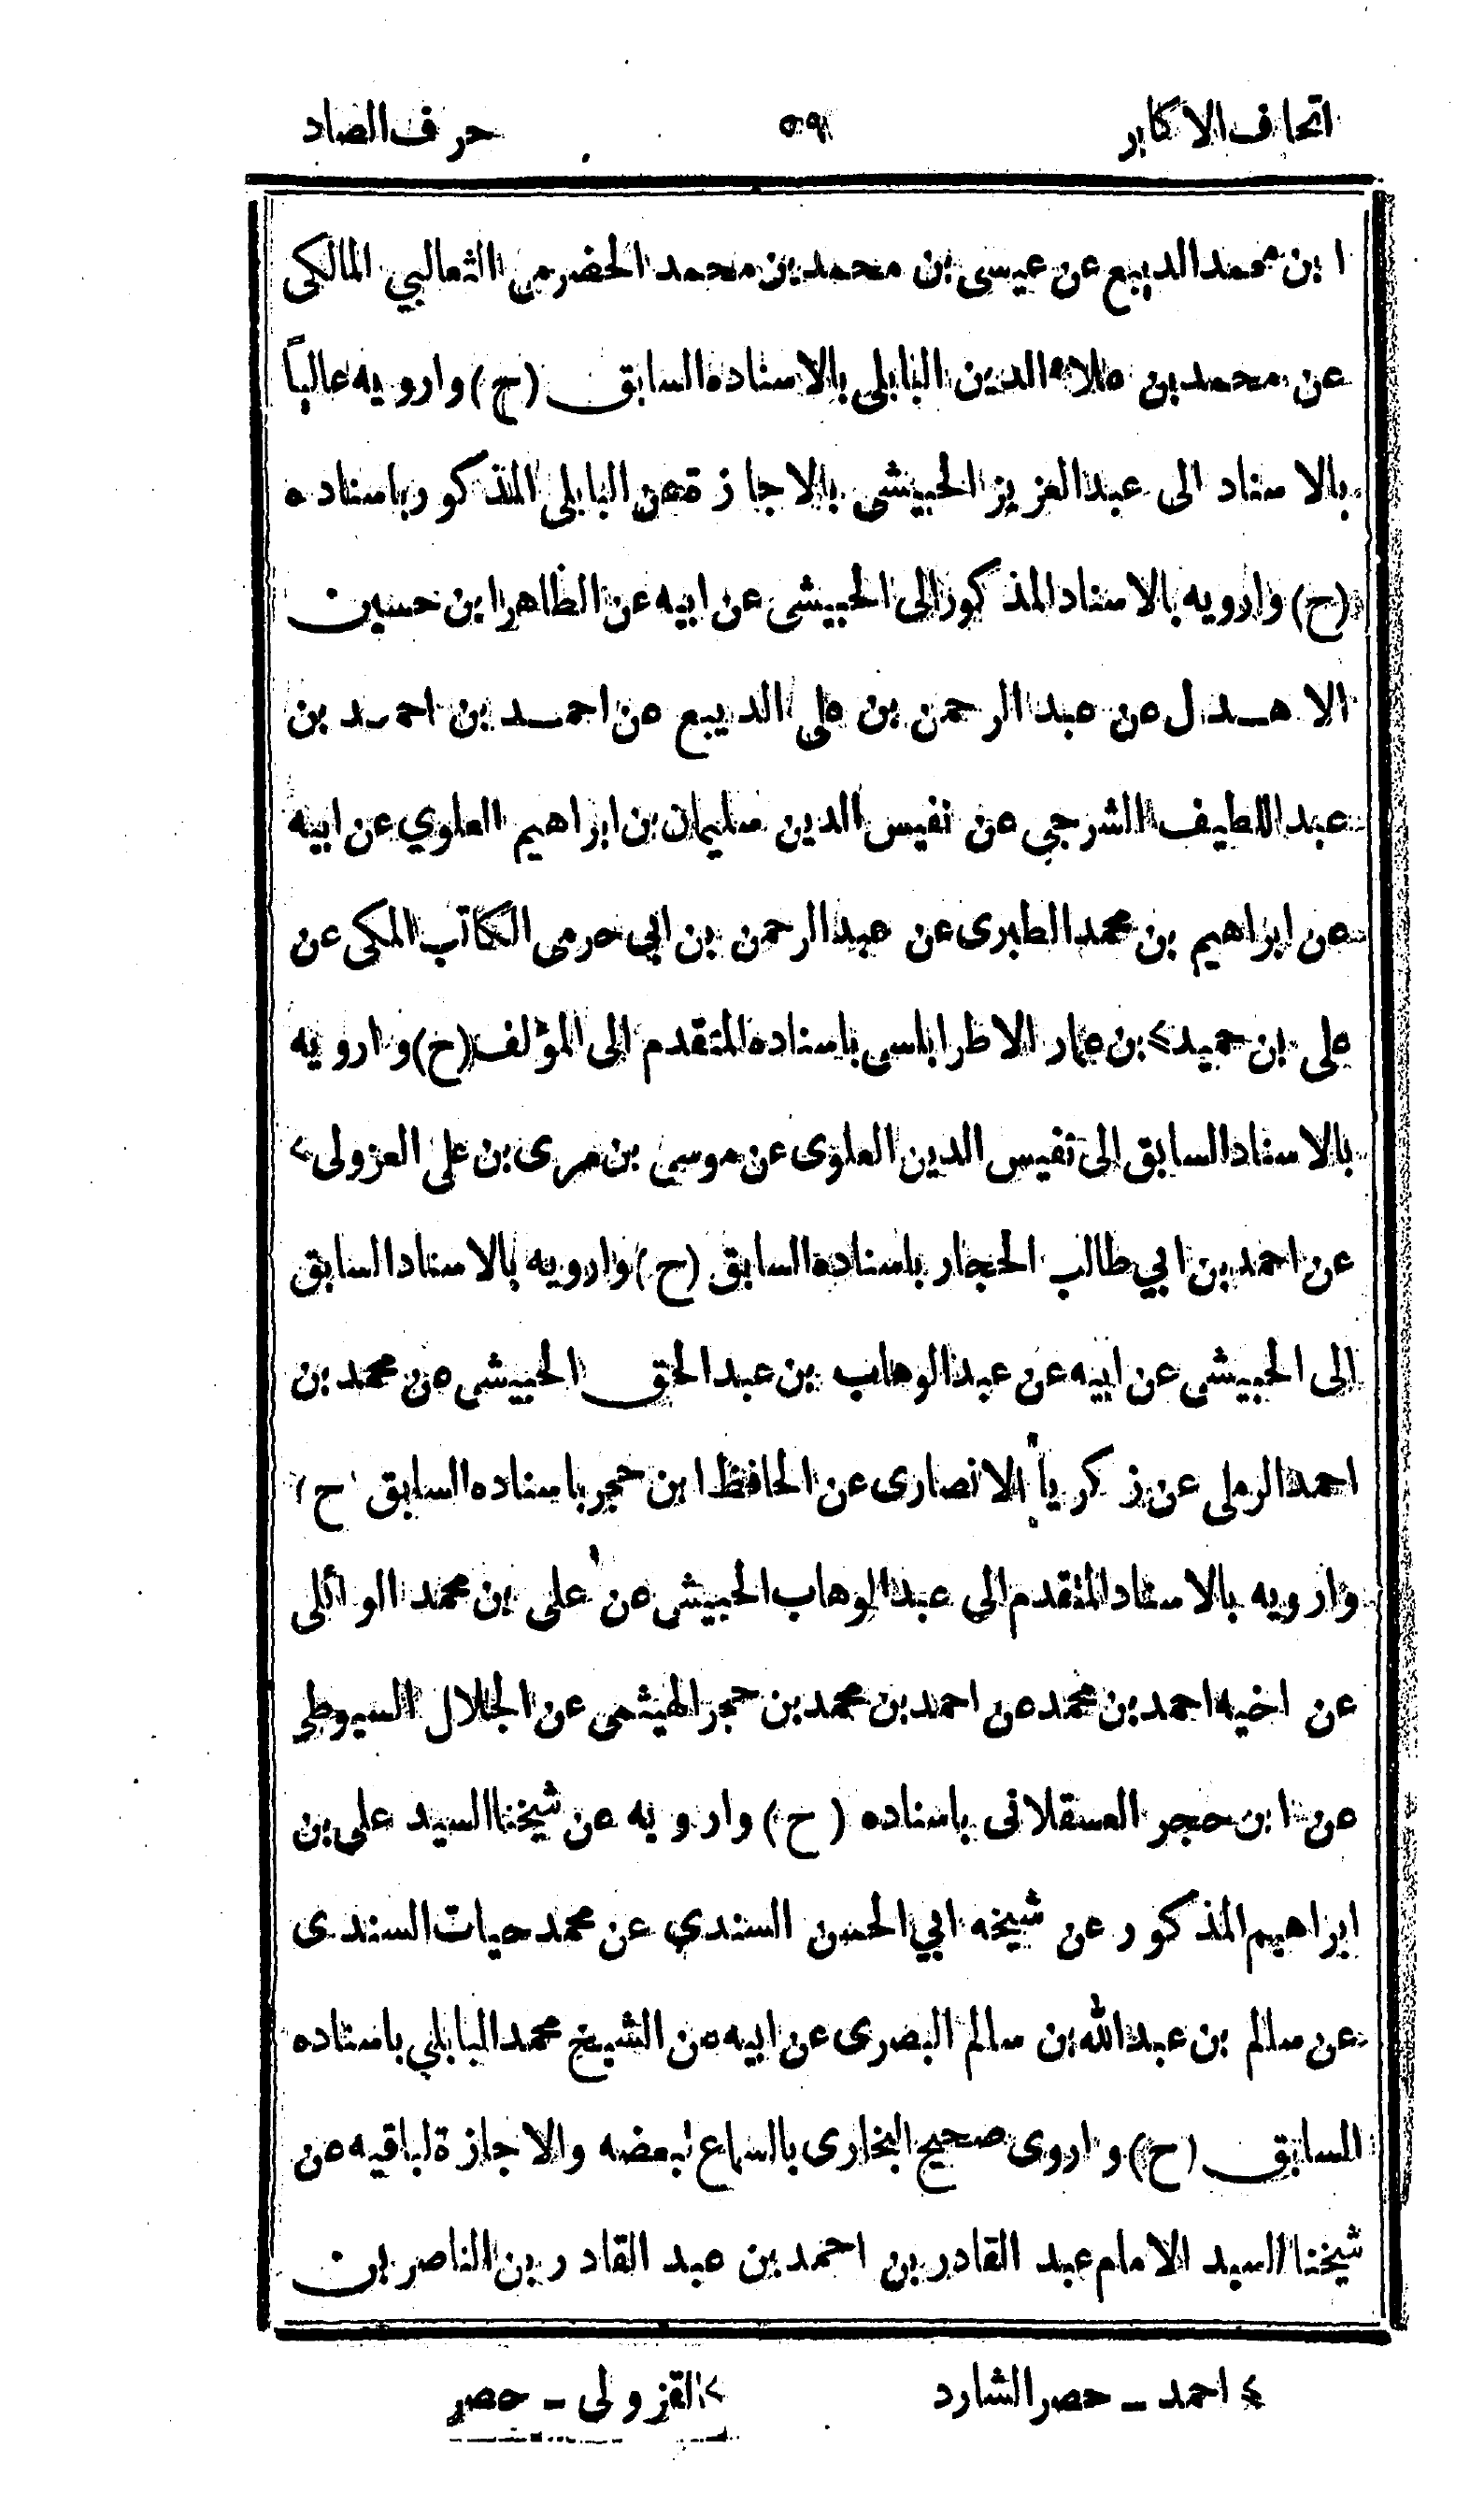 اتحاف الاكابر ٥٩ حرف الصاد
ابن محمد الديبع عن عيسى بن محمد بن محمد الحضرمى الثعالبي المالكى
عن محمد بن علاء الدين البابلى بالاسناده السابق (ح) وارويه عالياً
بالاسناد الى عبد العزيز الحبيشى بالاجازة عن البابلى المذكور باسناده
(ح) وارويه بالاسناد المذكور الى الحبيشى عن ابيه عن الطاهر ابن حسين
الاهدل عن عبد الرحمن بن على الديبع عن احمد بن احمد بن
عبد اللطيف الشرجي عن نفيس الدين سليمان بن ابراهيم العلوي عن ابيه
عن ابراهيم بن محمد الطبرى عن عبد الرحمن بن ابي حرمى الكاتب المكى عن
على بن حميد > بن عمار الاطرابلسى باسناده المتقدم الى المؤلف (ح) وارويه
بالاسناد السابق الى نفيس الدين العلوى عن موسى بن مرى بن على العزولى >
عن احمد بن ابي طالب الحجار باسناده السابق (ح) وارويه بالاسناد السابق
الى الحبيشى عن ابيه عن عبد الوهاب بن عبد الحق الحبيشى عن محمد بن
احمد الرملى عن زكريا الانصارى عن الحافظ ابن حجر باسناده السابق ح)
وارويه بالاسناد المتقدم الى عبد الوهاب الحبيش عن على بن محمد الوائلى
عن اخيه احمد بن محمد عن احمد بن محمد بن حجر الهيثمى عن الجلال السيوطى
عن ابن حجر العسقلانى باسناده (ح) وارويه عن شيخنا السيد على بن
ابراهيم المذكور عن شيخه ابي الحسن السندي عن محمد حيات السندى
عن سالم بن عبد الله بن سالم البصرى عن ابيه عن الشيخ محمد البابلي باسناده
السابق (ح) واروى صحيح البخارى بالسماع لبعضه والاجازة لباقيه عن
شيخنا السيد الامام عبد القادر بن احمد بن عبد القادر بن الناصر بن
> احمد ـ حصر الشارد > القزولى ـ حصر